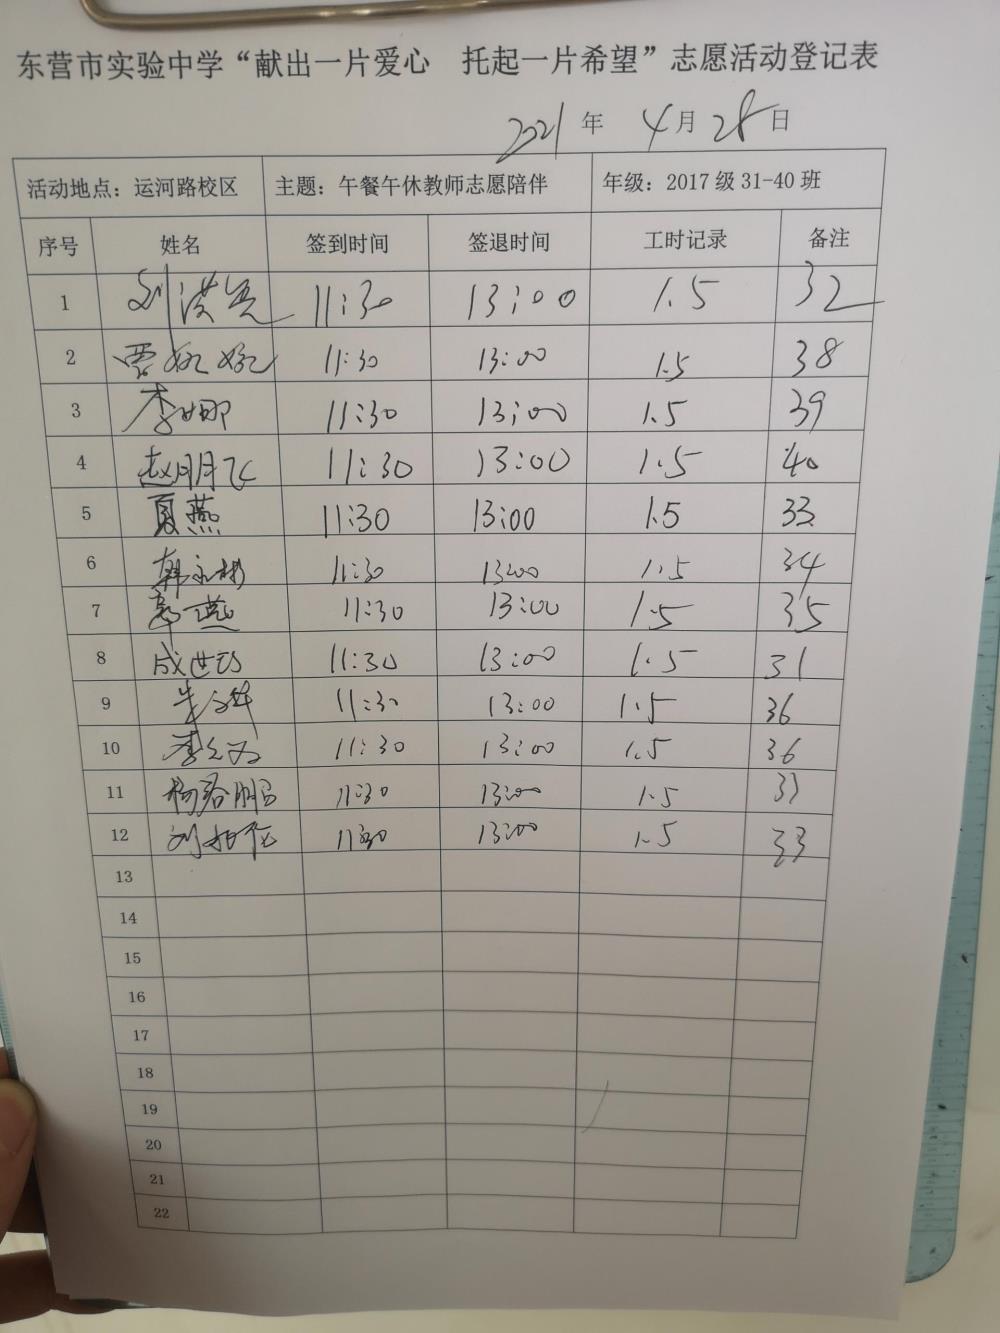 东营市实验中学“献出一片爱心 托起一片希望”志愿活动登记表
2021 年 4 月 28 日
活动地点：运河路校区 主题：午餐午休教师志愿陪伴 年级：2017 级 31-40 班
序号 姓名 签到时间 签退时间 工时记录 备注
1 11:30 13:00 1.5 32
2 11:30 13:00 1.5 38
3 李娜 11:30 13:00 1.5 39
4 赵朋飞 11:30 13:00 1.5 40
5 夏燕 11:30 13:00 1.5 33
6 11:30 13:00 1.5 34
7 11:30 13:00 1.5 35
8 11:30 13:00 1.5 31
9 11:30 13:00 1.5 36
10 11:30 13:00 1.5 36
11 11:30 13:00 1.5
12 11:30 13:00 1.5 33
13
14
15
16
17
18
19
20
21
22